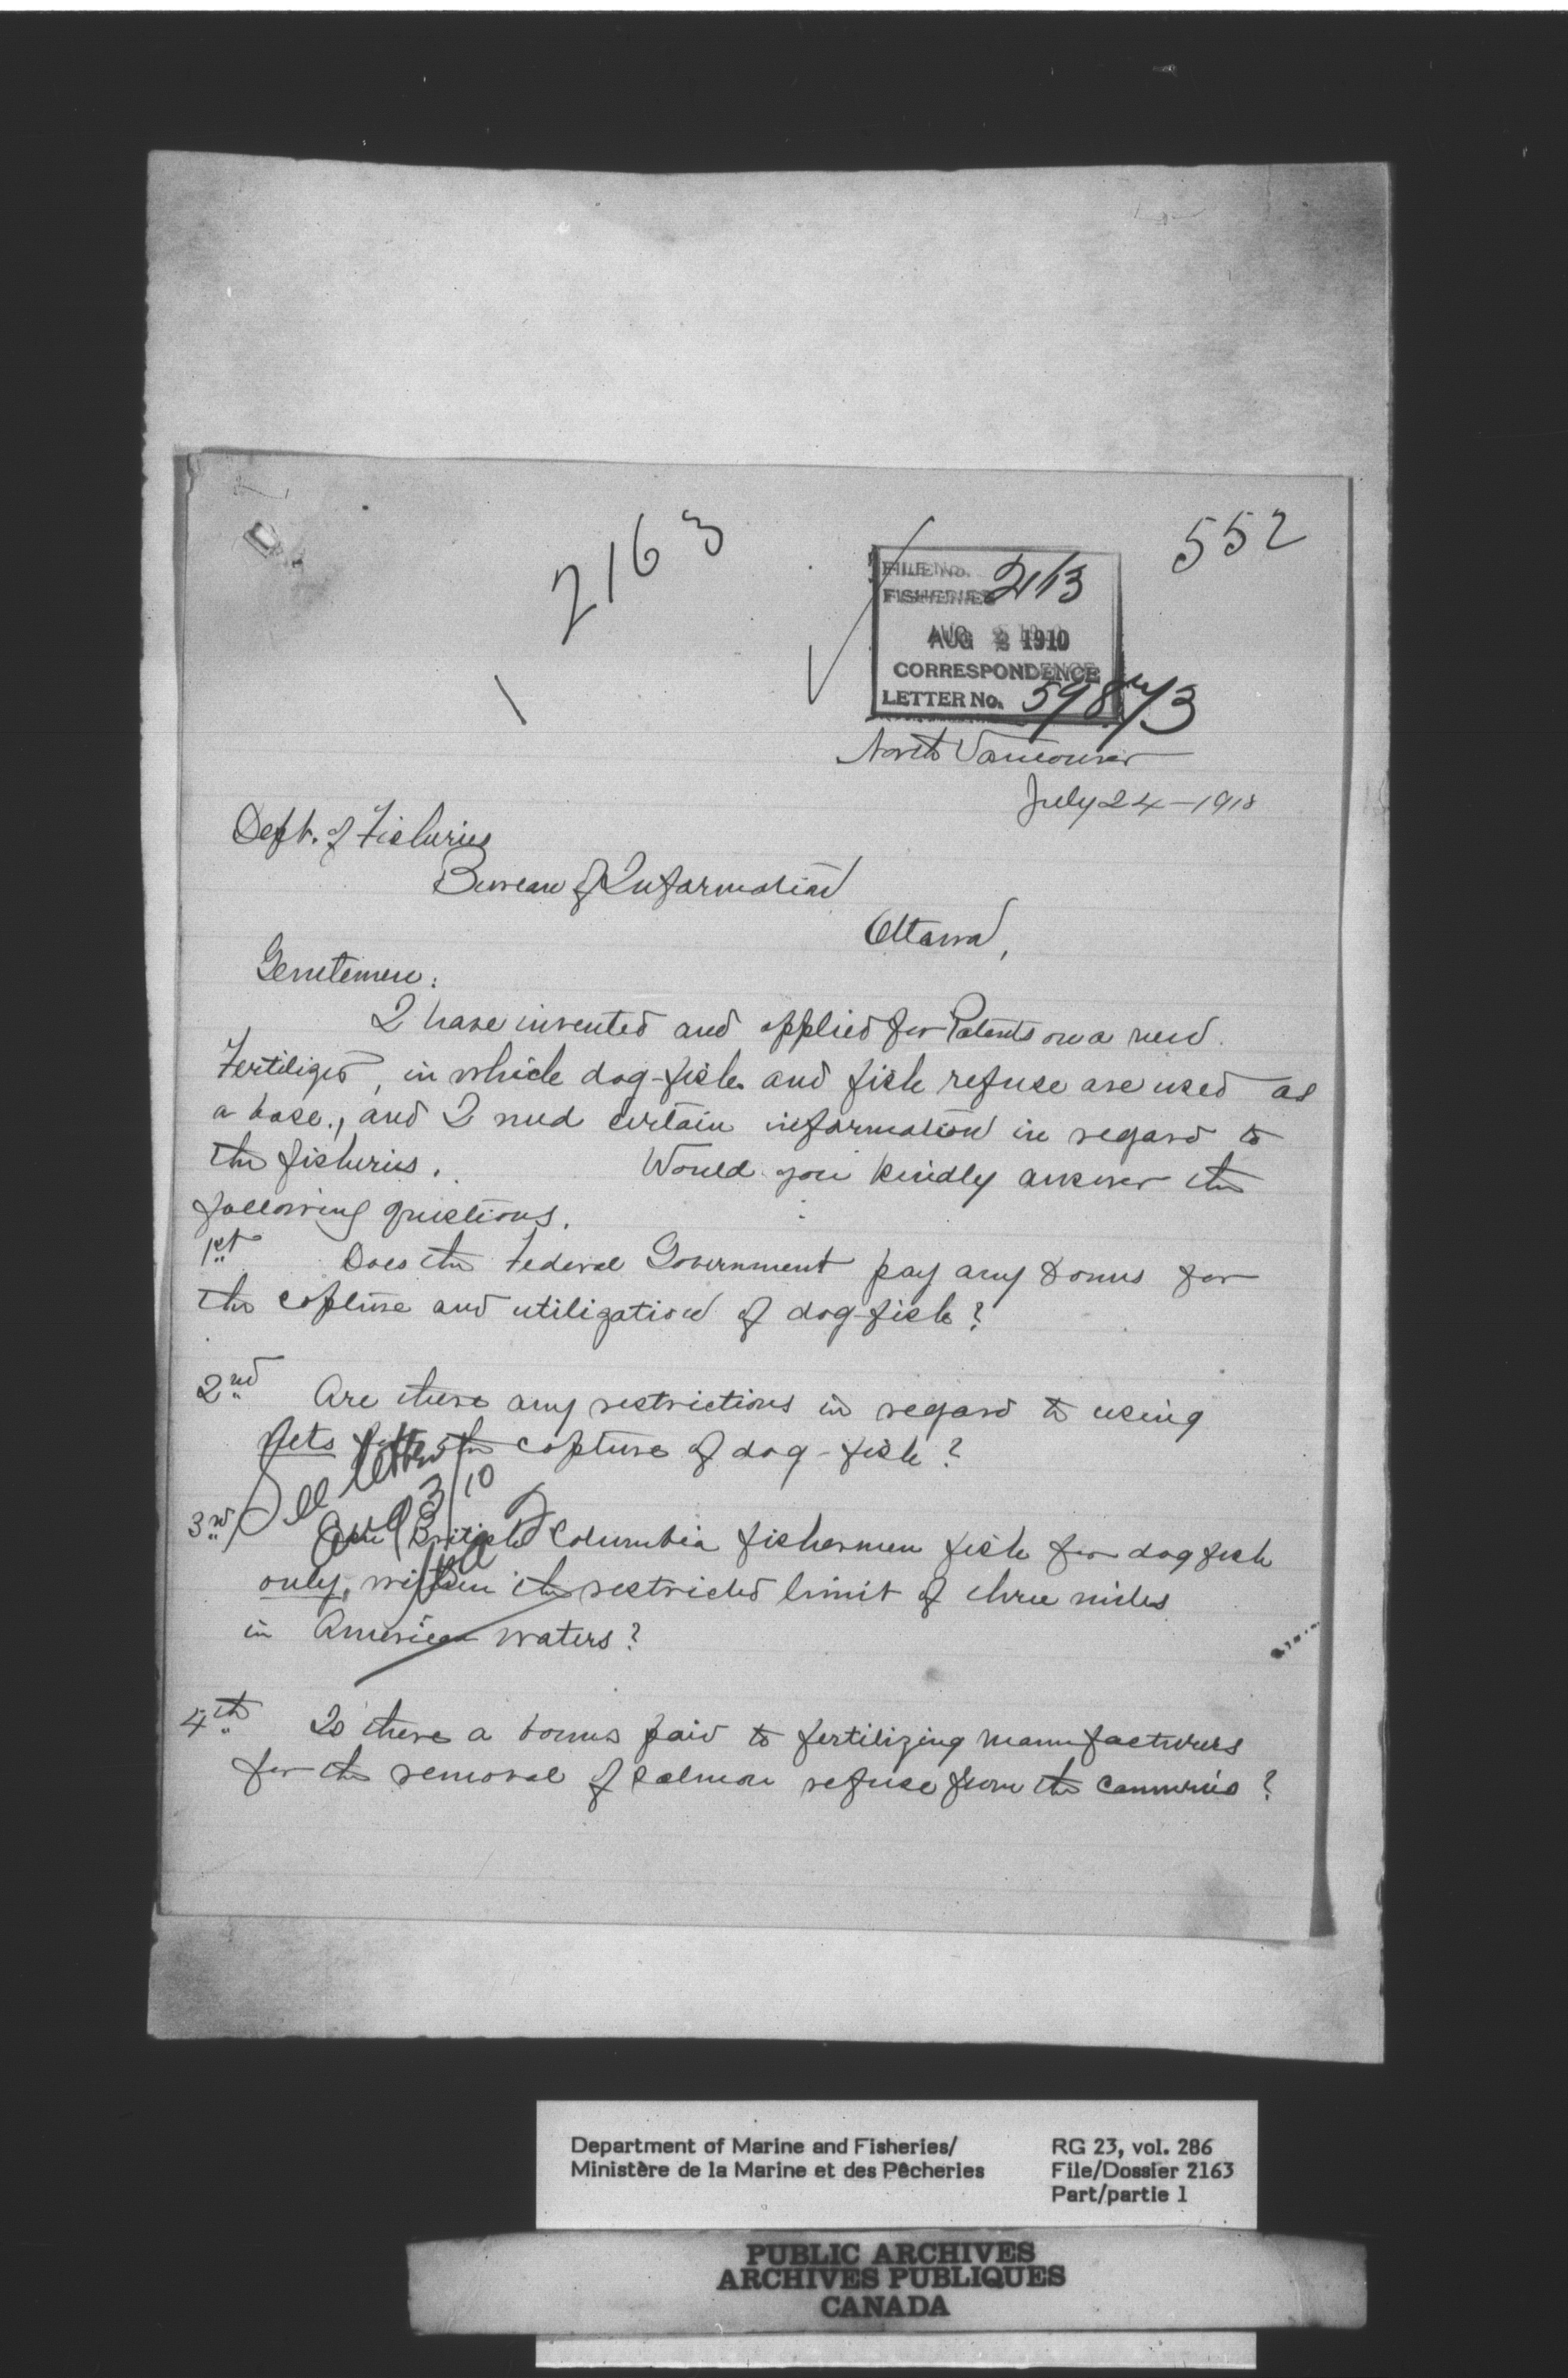 2163
552
FILE No. 2163
FISHERIES
AUG 2 1910
CORRESPONDENCE
LETTER No. 59873
North Vancouver
July 24 - 1910
Dept. of Fisheries
Bureau of Information
Ottawa,
Gentlemen:
I have invented and applied for Patents on a new
Fertilizer, in which dog-fish and fish refuse are used as
a base., and I need certain information in regard to
the fisheries. Would you kindly answer the
following questions.
1st Does the Federal Government pay any bonus for
the capture and utilization of dog-fish?
2nd Are there any restrictions in regard to using
nets for the capture of dog-fish?
See letter
Aug 3/10
3rd Can British Columbia fishermen fish for dog fish
only, within the restricted limit of three miles
in American waters?
4th Is there a bonus paid to fertilizing manufacturers
for the removal of salmon refuse from the canneries?
Department of Marine and Fisheries/
Ministère de la Marine et des Pêcheries
RG 23, vol. 286
File/Dossier 2163
Part/partie 1
PUBLIC ARCHIVES
ARCHIVES PUBLIQUES
CANADA